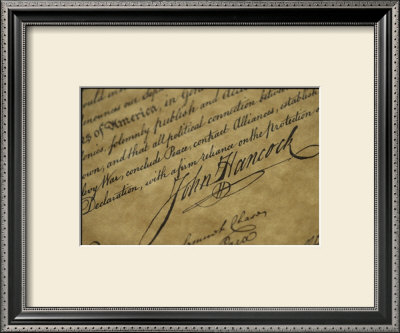 ould
nounces our
s of America, in Gen
onies, solemnly publish and
own, and that all political connection between
levy War, conclude Peace, contract Alliances, establish
Declaration, with a firm reliance on the protection o
John Hancock
Samuel Chase
Paca